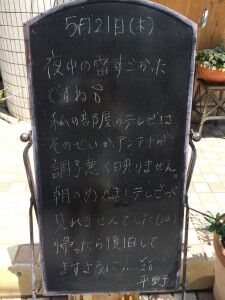 5月21日(水)
夜中の雷すごかった
ですね
私の部屋のテレビは
そのせいかアンテナが
調子悪く映りません。
朝のめざましテレビが
見れませんでした
帰ったら復旧して
ますように…
平野